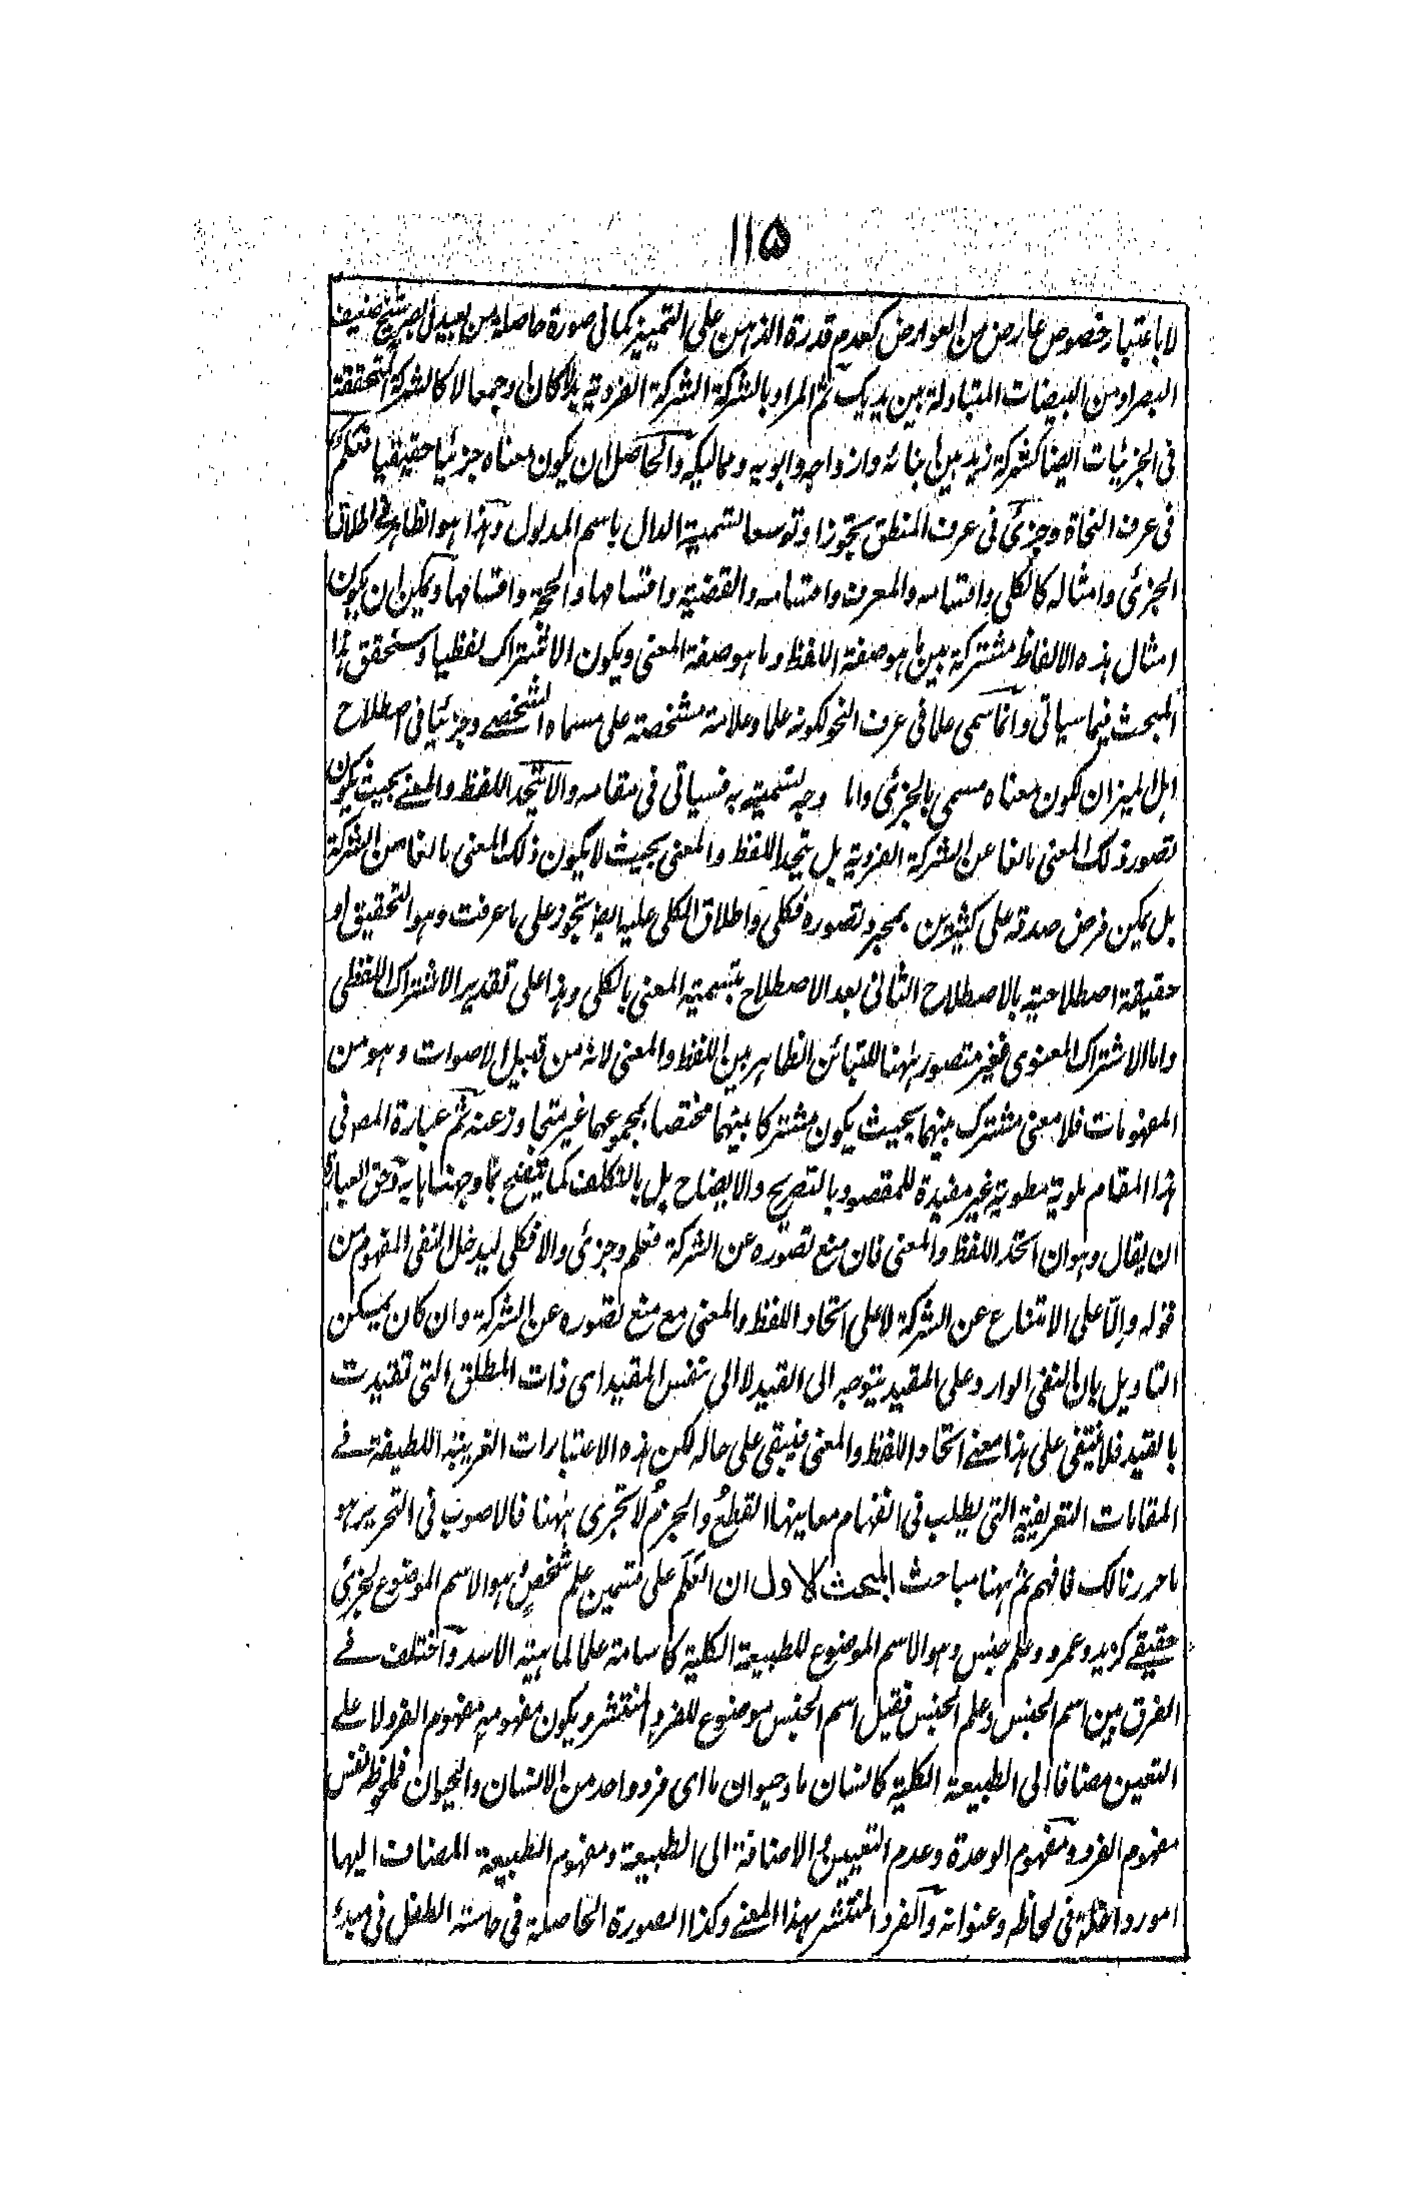 ١١٥
لا باعتبار خصوص عارض من العوارض كعدم قدرة الذهن على التمييز كما فى صورة حاصلة من بعيد لبصر شيخ ضعيف
البصر او من البيضات المتبادلة بين يديك ثم المراد بالشركة الشركة الفردية بدلا كان او جمعا لا كالشركة المتحققة
فى الجزئيات ايضا كشركة زيد بين ابنائه وازواجه وابويه ومماليكه والحاصل ان يكون معناه جزئيا حقيقيا فعلم
فى عرف النحاة وجزئى فى عرف المنطق تجوزا وتوسعا لتسمية الدال باسم المدلول وهذا هو الظاهر فى اطلاق
الجزئى وامثاله كالكلى واقسامه والمعرف واقسامه والقضية واقسامها والحجة واقسامها ويمكن ان يكون
امثال هذه الالفاظ مشتركة بين ما هو صفة اللفظ وما هو صفة المعنى ويكون الاشتراك لفظيا وستحقق هذا
المبحث فيما سياتى وانما سمى علما فى عرف النحو لكونه علما وعلامة مشخصة على مسماه الشخصے وجزئيا فى اصطلاح
اهل الميزان لكون معناه مسمى بالجزئى واما وجه تسميته به فسياتى فى مقامه والا يتحد اللفظ والمعنے بحيث يكون
تصور ذلك المعنى مانعا عن الشركة الفردية بل يتحد اللفظ والمعنى بحيث لا يكون ذلك المعنى مانعا من الشركة
بل يمكن فرض صدقه على كثيرين بمجرد تصوره فكلى واطلاق الكلى عليه ايضا تجوز على ما عرفت وهو التحقيق او
حقيقة اصطلاحية بالاصطلاح الثانى بعد الاصطلاح بتسمية المعنى بالكلى وهذا على تقدير الاشتراك اللفظى
واما الاشتراك المعنوى فغير متصور ههنا للتبائن الظاهر بين اللفظ والمعنى لانه من قبيل الاصوات وهو من
المفهومات فلا معنى مشترك بينهما بحيث يكون مشتركا بينهما مختصا بمجموعهما غير متجاوز عنه ثم عبارة المصر فى
هذا المقام ملوية مطوية غير مفيدة للمقصود بالتصريح والايضاح بل بالتكلف كما يتضح بما وجهناها به وحق العبارة
ان يقال وهو ان اتحد اللفظ والمعنى فان منع تصوره عن الشركة فعلم وجزئى والا فكلى ليدخل النفى المفهوم من
قوله والّا على الامتناع عن الشركة لا على اتحاد اللفظ والمعنى مع منع تصوره عن الشركة وان كان يمكن
التاويل بان النفى الوارد على المقيد يتوجه الى القيد لا الى نفس المقيد اى ذات المطلق التى تقيدت
بالقيد فلا ينتفى على هذا معنے اتحاد اللفظ والمعنى فيبقى على حاله لكن هذه الاعتبارات الغريبة اللطيفة فے
المقامات التعريفية التى يطلب فى انفهام معاينها القطعُ والجزمُ لا تجرى ههنا فالاصوب فى التحرير هو
ما حررنا لك فافهم ثم ههنا مباحث المبحث الاول ان العَلَم على قسمين علم شخصٍ وهو الاسم الموضوع لجزئى
حقيقے كزيد وعمرو وعلم جنس وهو الاسم الموضوع للطبيعة الكلية كاسامة علما لماهية الاسد وآختلف فے
الفرق بين اسم الجنس وعلم الجنس فقيل اسم الجنس موضوع للفرد المنتشر ويكون مفهومه مفهوم الفرد لا على
التعين مضافا الى الطبيعة الكلية كانسان ما وحيوان ما اى فرد واحد من الانسان والحيوان فملحوظه نفس
مفهوم الفرد ومفهوم الوحدة وعدم التعيين والاضافة الى الطبيعة ومفهوم الطبيعة المضاف اليها
امور داخلة فى لحاظه وعنوانه والفرد المنتشر بهذا المعنے وكذا الصورة الحاصلة فى حاسة الطفل فى مبدء